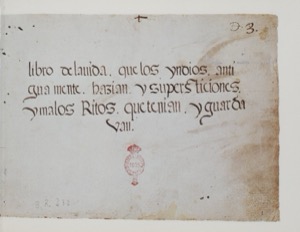 D. 3.
libro de la vida. que los yndios. anti
gua mente. hazian. y supersticiones.
y malos Ritos. que tenian. y guarda
van.